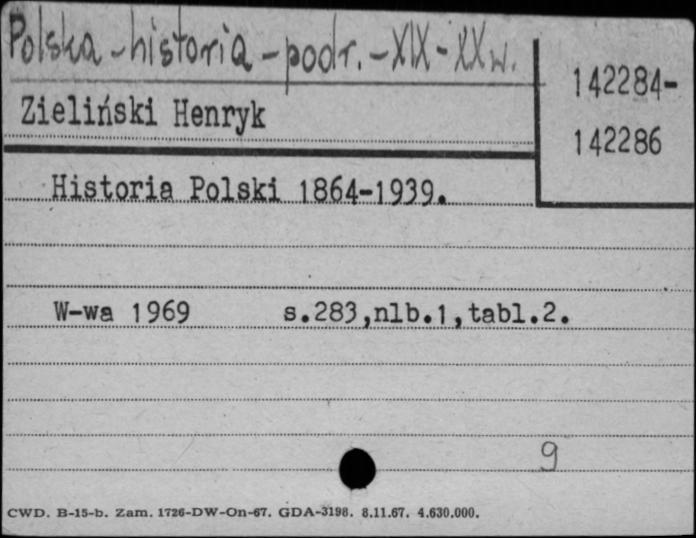 Polska - historia - podr. - XIX - XX w.
142284-
142286
Zieliński Henryk
Historia Polski 1864-1939.
W-wa 1969 s.283,nlb.1,tabl.2.
9
CWD. B-15-b. Zam. 1726-DW-On-67. GDA-3198. 8.11.67. 4.630.000.